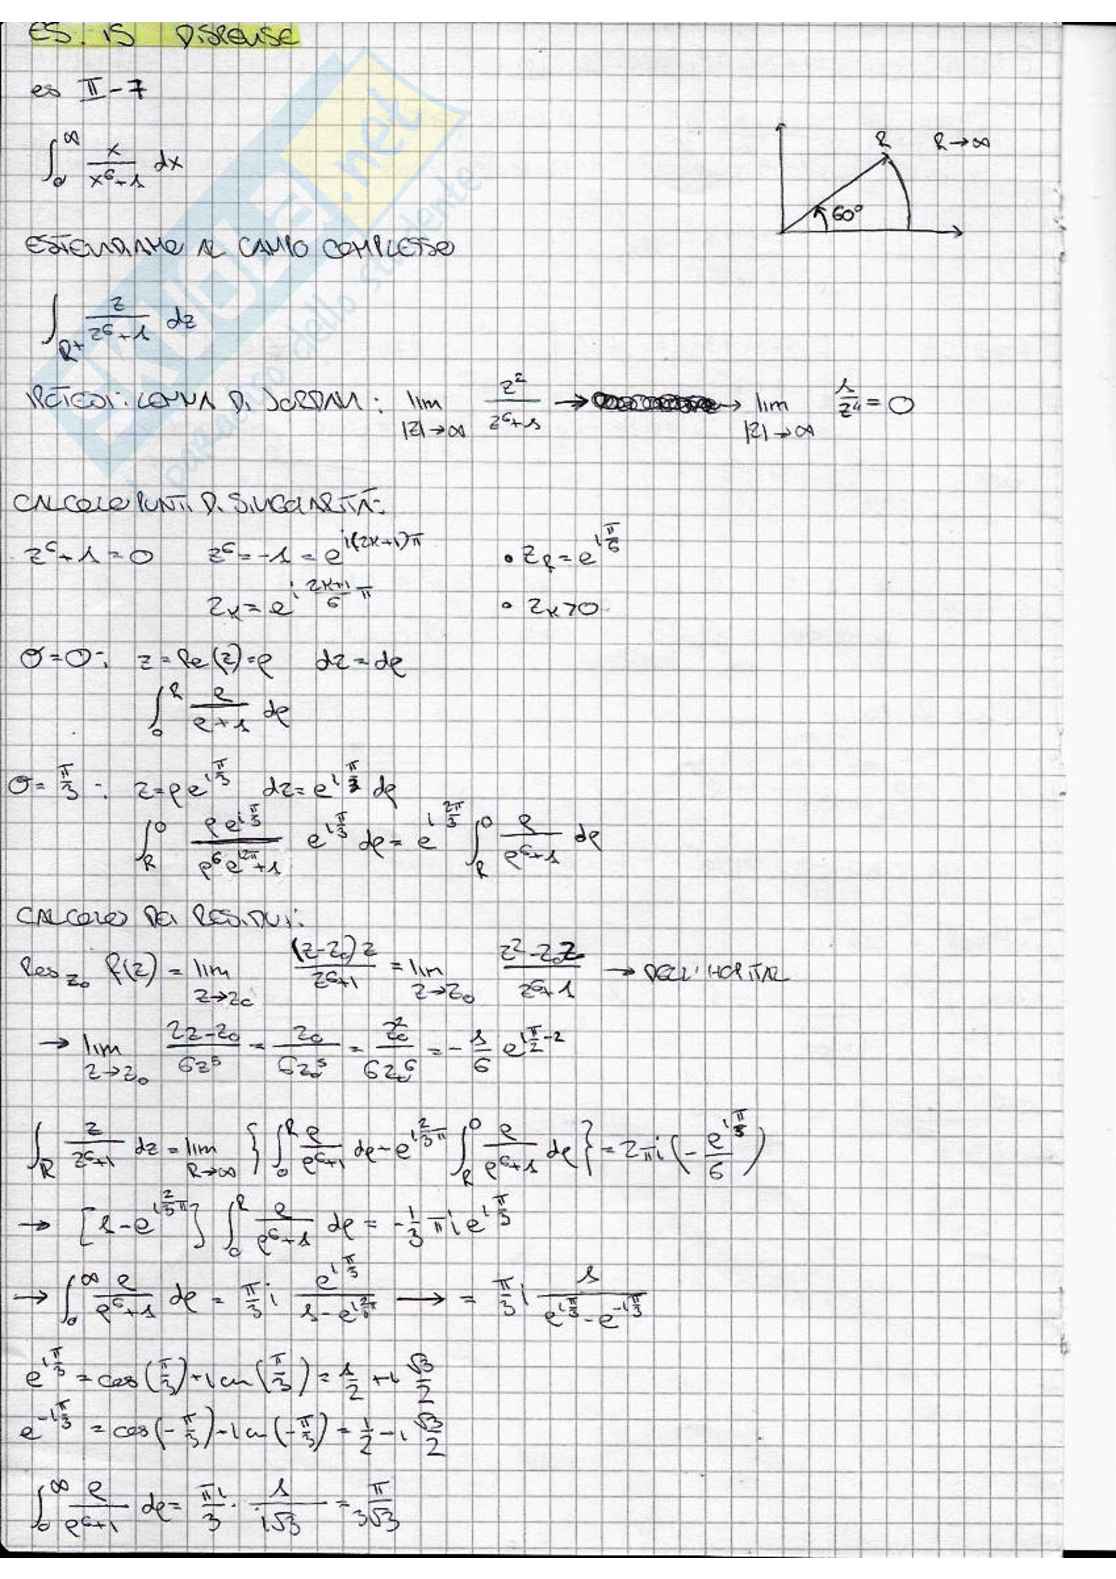 ES. 15 DISPENSE
es II-7
∫_0^∞ x/(x^6+1) dx
R R→∞
60°
ESTENDIAMO AL CAMPO COMPLESSO
∫_{R+} z/(z^6+1) dz
IPOTESI: LEMMA DI JORDAN: lim_{|z|→∞} z^2/(z^6+1) → → lim_{|z|→∞} 1/z^4 = 0
CALCOLO PUNTI DI SINGOLARITÀ:
z^6+1=0 z^6=-1=e^{i(2k+1)π} • z_k=e^{iπ/6}
z_k=e^{i (2k+1)/6 π} • z_k>0
θ=0: z=Re(z)=ρ dz=dρ
∫_0^R ρ/(ρ+1) dρ
θ=π/3: z=ρe^{iπ/3} dz=e^{iπ/3} dρ
∫_R^0 ρe^{iπ/3}/(ρ^6 e^{i2π}+1) e^{iπ/3} dρ = e^{i2π/3} ∫_R^0 ρ/(ρ^6+1) dρ
CALCOLO DEI RESIDUI:
Res_{z_0} f(z) = lim_{z→z_0} (z-z_0)z/(z^6+1) = lim_{z→z_0} (z^2-z_0z)/(z^6+1) → DELL'HOPITAL
→ lim_{z→z_0} (2z-z_0)/(6z^5) = z_0/(6z_0^5) = z_0^2/(6z_0^6) = -1/6 e^{iπ/2·2}
∫_R z/(z^6+1) dz = lim_{R→∞} { ∫_0^R ρ/(ρ^6+1) dρ - e^{i2/3π} ∫_R^0 ρ/(ρ^6+1) dρ } = 2πi(-e^{iπ/3}/6)
→ [1-e^{i2/3π}] ∫_0^R ρ/(ρ^6+1) dρ = -1/3 πi e^{iπ/3}
→ ∫_0^∞ ρ/(ρ^6+1) dρ = π/3 i e^{iπ/3}/(1-e^{i2/3π}) → = π/3 i 1/(e^{iπ/3}-e^{-iπ/3})
e^{iπ/3} = cos(π/3)+i sen(π/3) = 1/2 + i √3/2
e^{-iπ/3} = cos(-π/3)-i sen(-π/3) = 1/2 - i √3/2
∫_0^∞ ρ/(ρ^6+1) dρ = πi/3 · 1/(i√3) = π/(3√3)
SKUOLA.net
dello studente